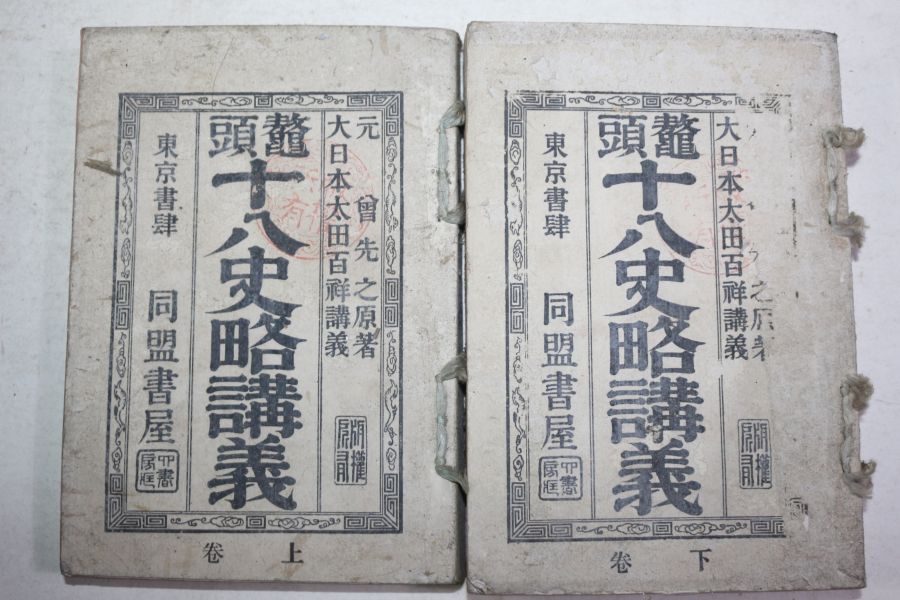 元 曾先之原著
大日本太田百祥講義
鼇頭
十八史略講義
東京書肆 同盟書屋
上卷
大日本太田百祥講義
鼇頭
十八史略講義
東京書肆 同盟書屋
下卷